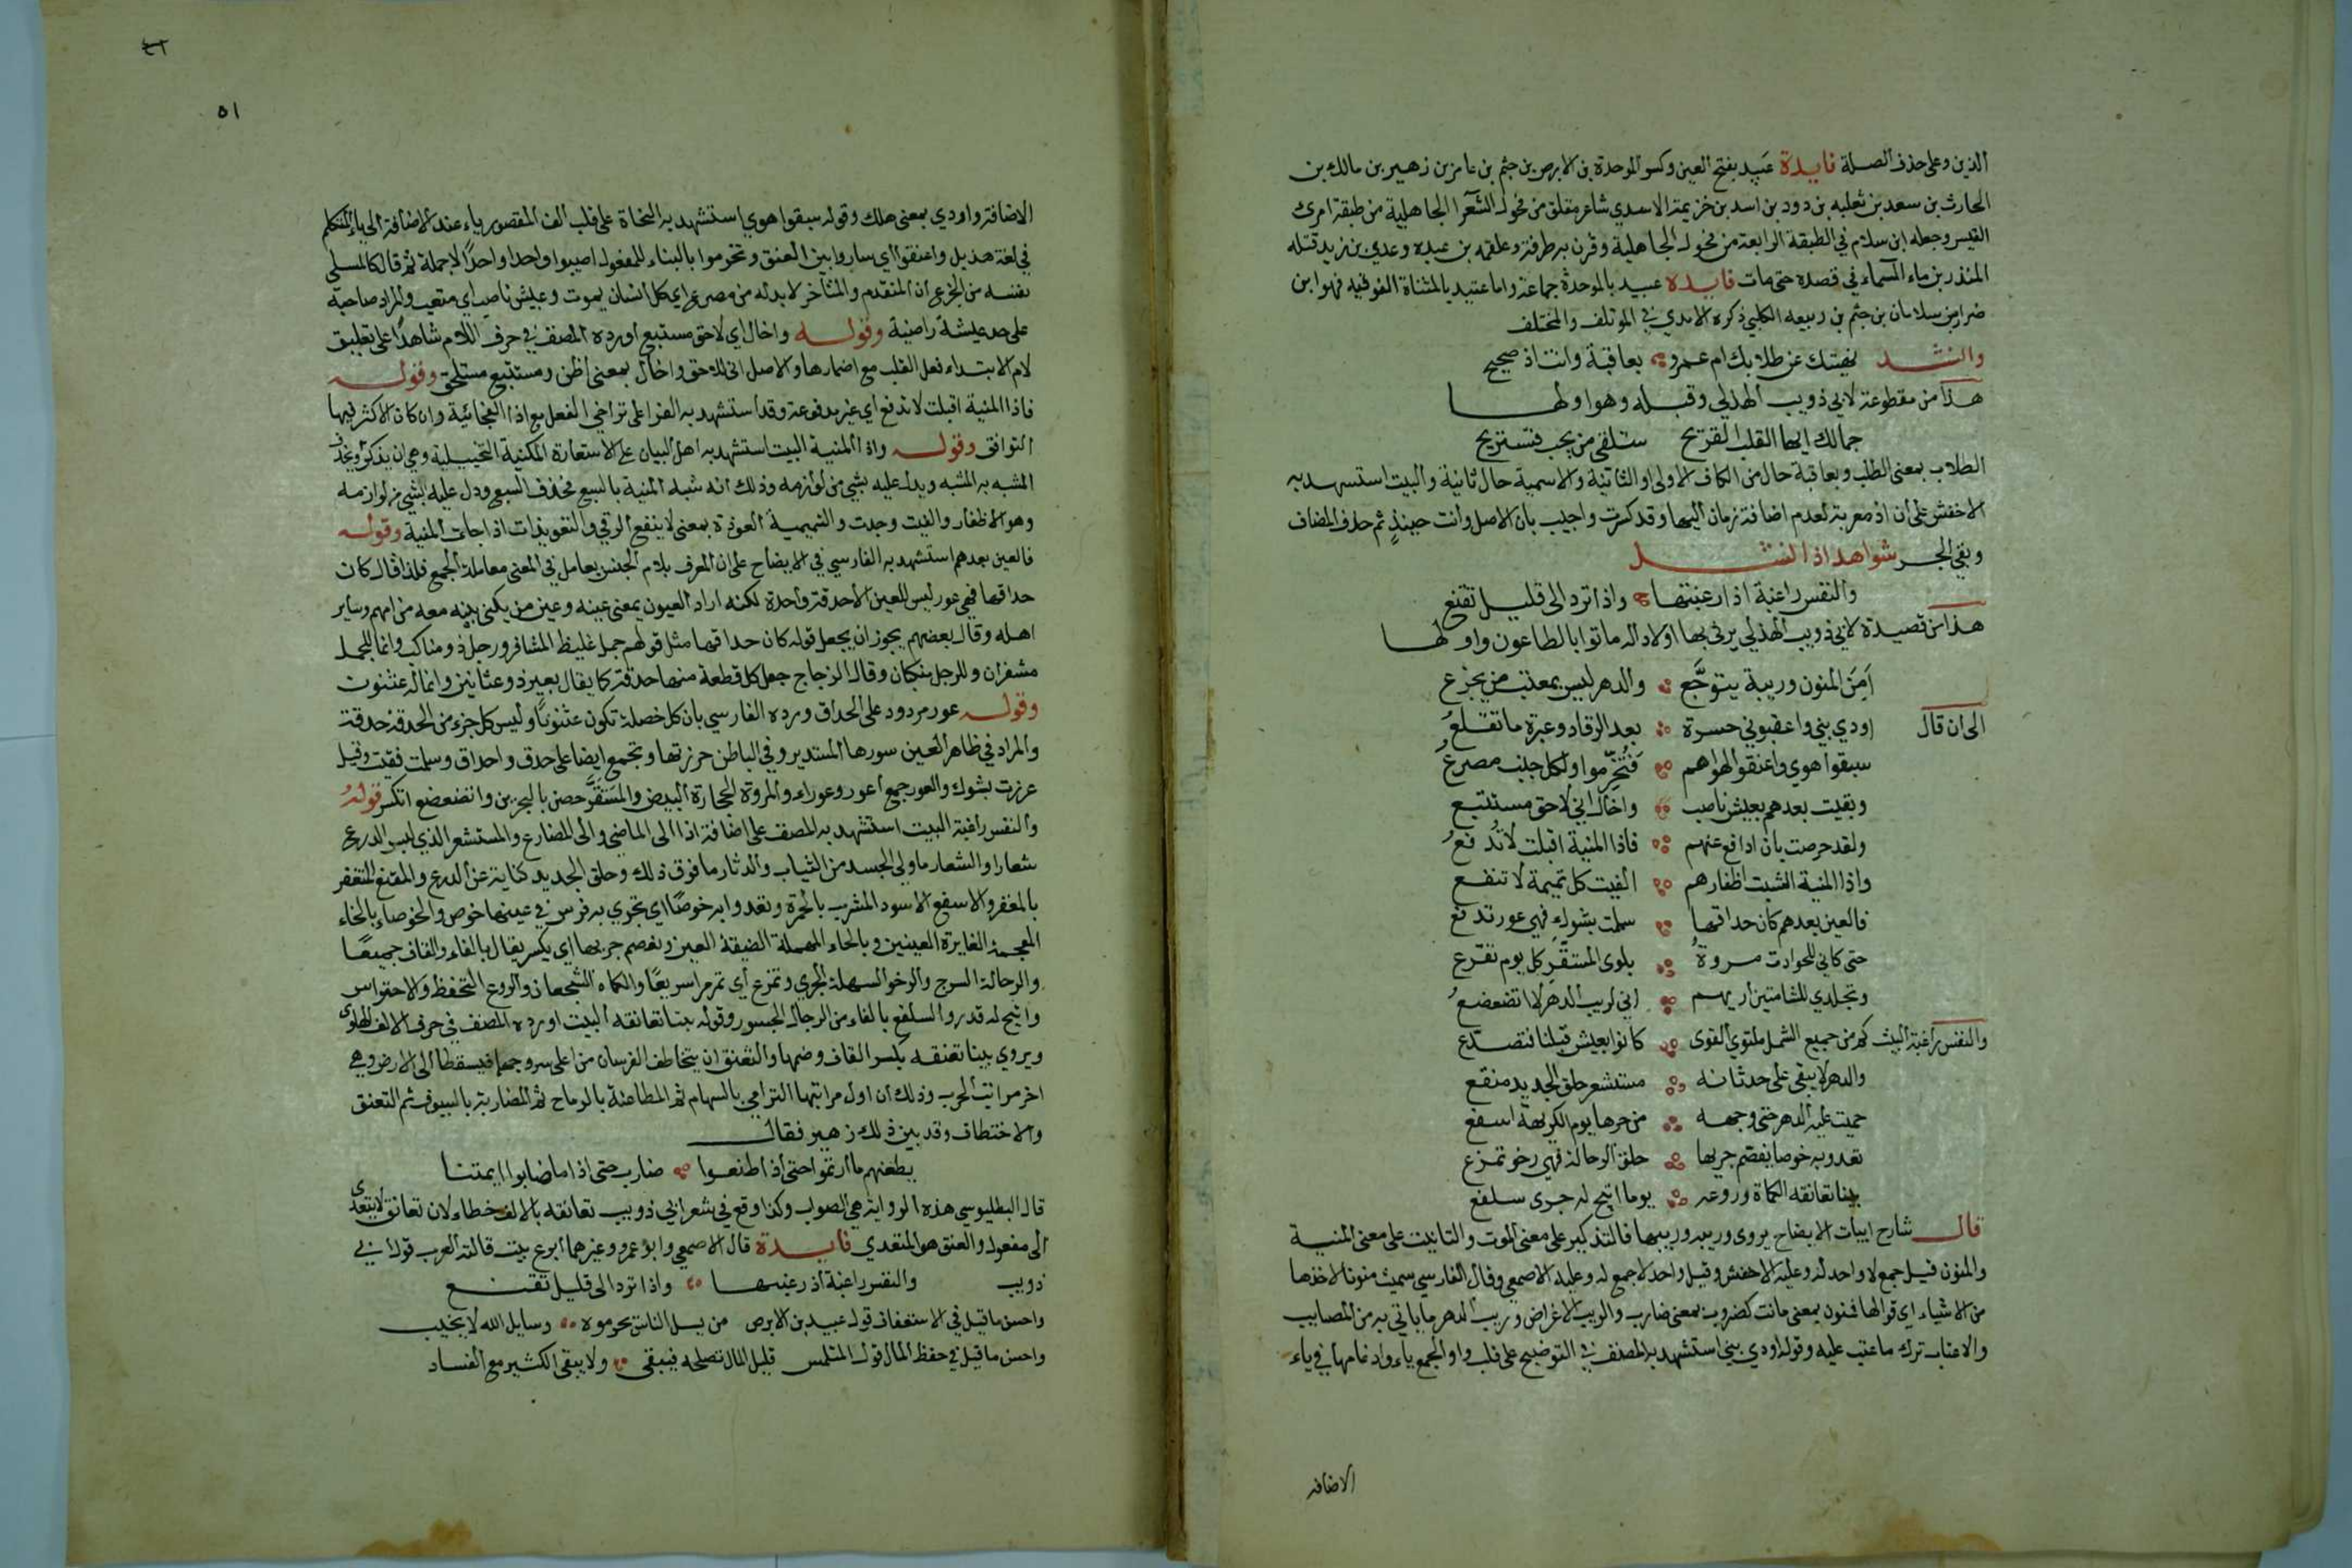 الذين وعلى حذف الصلة فايدة عَبِيد بفتح العين وكسر الموحدة بن الابرص بن جثم بن عامر بن زهير بن مالك بن
الحارث بن سعد بن ثعلبه بن دود بن اسد بن خزيمة الاسدي شاعر مفلق من فحول الشعرا الجاهلية من طبقة امرئ
القيس وجعله ابن سلام في الطبقة الرابعة من فحول الجاهلية وقرن به طرفة وعلقمه بن عبده وعدي بن زيد قتله
المنذر بن ماء السماء في قصده حتى مات فايده عبيد بالموحدة جماعة واما عتيد بالمثناة الفوقيه فهو ابن
ضرار بن سلامان بن جثم بن ربيعه الكلبي ذكره الامدي في الموتلف والمختلف
وانشد نهيتك عن طلابك ام عمرو بعاقبة وانت اذ صحيح
هذا من مقطوعة لابي ذويب الهذلي وقبله وهو اولها
جمالك ايها القلب القريح ستلقى من يحب فتستريح
الطلاب بمعنى الطلب وبعاقبة حال من الكاف الاولى او الثانية والاسمية حال ثانية والبيت استسهد به
الاخفش على ان اذ معربة لعدم اضافة زمان اليها وقد كسرت واجيب بان الاصل وانت حينئذٍ ثم حذف المضاف
وبقي الجر شواهد اذا انشد
والنفس راغبة اذا رغبتها واذا ترد الى قليل تقنع
هذا من قصيدة لابي ذويب الهذلي يرثي بها اولاد اله ماتوا بالطاعون واولها
اَمِنَ المنون وريبة يتوجَّع والدهر ليس بمعتب من يجزع
الى ان قال اودي بني واعقبوني حسرة بعد الرقاد وعبرة ما تقلعُ
سبقوا هوي واعنقوا لهواهم فَتُخُرِّموا ولكل جنب مصرعُ
وبقيت بعدهم بعيش ناصب واخال اني لاحق مستتبع
ولقد حرصت بان ادافع عنهم فاذا المنية اقبلت لا تُدفعُ
واذا المنية انشبت اظفارهم الفيت كل تميمة لا تنفع
فالعين بعدهم كان حداقها سملت بشوك فهي عور تدمع
حتى كاني للحوادث مروةُ بلوى المشقَّرِ كل يوم تقرع
وتجلدي للشامتين اريهم اني لريب الدهر لا اتضعضعُ
والنفس راغبة البيت كم من جميع الشمل ملتوي القوى كانوا بعيش قبلنا فتصدع
والدهر لا يبقى على حدثانه مستشعر حلق الجديد مقنع
حميت عليه الدهر حتى وجهه من حرها يوم الكريهة اسفع
تعدو به خوصا يفصم جريها حلق الرحالة فهي رخو تمزع
بينا تعانقه الكماة وروعه يوما اتيح له جرى سلفع
قال شارح ابيات الايضاح يروى وريبه وريبها فالتذكير على معنى الموت والتانيت على معنى المنية
والمنون قيل جمع لا واحد له وعليه الاخفش وقيل واحد لا جمع له وعليه الاصمعي وقال الفارسي سميت منونا لاخذها
من الاشياء اي قواها فمنون بمعنى مانت كضروب بمعنى ضارب والريب الاعراض وريب الدهر ما ياتي به من المصايب
والاعتاب ترك ما عتب عليه وقوله اودي بني استشهد به المصنف في التوضيح على قلب واو الجمع ياء وادغامها في ياء
الاضافه
٤٦
٥١
الاضافة واودي بمعنى هلك وقوله سبقوا هوي استشهد به النحاة على قلب الف المقصور ياء عند الاضافة الى ياء المتكلم
في لغة هذيل واعنقوا اي ساروا بين العنق وتخرموا بالبناء للمفعول اصيبوا واحدا واحدًا لاجملة ثم قال كالمسلى
نفسه من الجزع ان المتقدم والمتاخر لا بد له من مصرع اي كل انسان يموت وعيش ناصب اي متعب والمراد صاحبه
على حد عيشة راضية وقوله واخال اي لاحق مستتبع اورده المصنف في حرف اللام شاهدًا على تعليق
لام الابتداء فعل القلب مع اضمارها والاصل اني للاحق واخال بمعنى اظن ومستتبع مستلحق وقوله
فاذا المنية اقبلت لا تدفع اي غير مدفوعة وقد استشهد به الفرا على تراخي الفعل مع اذا الفجائية وان كان الاكثر فيها
التوافق وقوله واذا المنية البيت استشهد به اهل البيان على الاستعارة المكنية التخييلية وهي ان يذكر ويحذف
المشبه به المشبه ويدل عليه بشي من لوازمه وذلك انه شبه المنية بالسبع فحذف السبع ودل عليه بشي من لوازمه
وهو الاظفار والفيت وجدت والتميمة العوذة بمعنى لا ينفع الرقي والتعويذات اذا جات المنية وقوله
فالعين بعدهم استشهد به الفارسي في الايضاح على ان المعرف بلام الجنس يعامل في المعنى معاملة الجمع فلذا قال كان
حداقها فهي عور ليس للعين الاحدقة واحدة لكنه اراد العيون يعني عينه وعين من يبكى بنيه معه من امهم وساير
اهله وقال بعضهم يجوز ان يجعل قوله كان حداقها مثل قولهم جمل غليظ المشافر ورجل ذو مناكب وانما للجمل
مشفران وللرجل منكبان وقال الزجاج جعل كل قطعة منها حدقة كما يقال بعير ذو عثانين وانما له عثنون
وقوله عور مردود على الحداق ورده الفارسي بان كل خصلة تكون عثنونًا وليس كل جزء من الحدقة حدقة
والمراد في ظاهر العين سورها المستدير وفي الباطن خرزتها وتجمع ايضا على حدق واحداق وسملت فقيت وقيل
غرزت بشوك والعور جمع اعور وعوراء والمروة الحجارة البيض والمشَقَّر حصن بالبحرين واتضعضع انكسر قوله
والنفس راغبة البيت استشهد به المصنف على اضافة اذا الى الماضي والى المضارع والمستشعر الذي لبس الدرع
شعارا والشعار ما ولي الجسد من الثياب والدثار ما فوق ذلك وحلق الجديد كناية عن الدرع والمقنع المتغفر
بالمغفر والاسفع الاسود المشرب بالحمرة وتعدو به خوصًا اي تجري به فرس في عينها خوص والخوصاء بالخاء
المعجمة الغايرة العينين وبالحاء المهملة الضيقة العين ويفصم جريها اي يكسر يقال بالفاء والقاف جميعًا
والرحالة السرج والرخو السهلة الجري وتمزع اي تمر مرا سريعًا والكماه الشجعان والروع التحفظ والاحتراس
واتيح له قدر والسلفع بالفاء من الرجال الجسور وقوله بينا تعانقه البيت اورده المصنف في حرف الالف الهاوى
ويروي بينا تعنقه بكسر القاف وضمها والتعنق ان يتخاطف الفرسان من اعلى سروجهما فيسقطا الى الارض وهي
اخر مراتب الحرب وذلك ان اول مراتبها الترامي بالسهام ثم المطاعنة بالرماح ثم المضاربة بالسيوف ثم التعنق
والاختطاف وقد بين ذلك زهير فقال
يطعنهم ما ارتموا حتى اذا اطعنوا ضارب حتى اذا ما ضابوا ايمتنا
قال البطليوسي هذه الرواية هي الصواب وكذا وقع في شعر ابي ذويب تعانقه بالالف خطاء لان تعانق لا يتعدى
الى مفعول والعنق هو المتعدي فايدة قال الاصمعي وابو عمرو وغيرهما ابرع بيت قالته العرب قول ابي
ذويب والنفس راغبة اذ رغبتها واذا ترد الى قليل تقنع
واحسن ما قيل في الاستعفاف قول عبيد بن الابرص من يسل الناس يحرموه وسايل الله لا يخيب
واحسن ما قيل في حفظ المال قول المتلمس قليل المال تصلحه فيبقى ولا يبقى الكثير مع الفساد